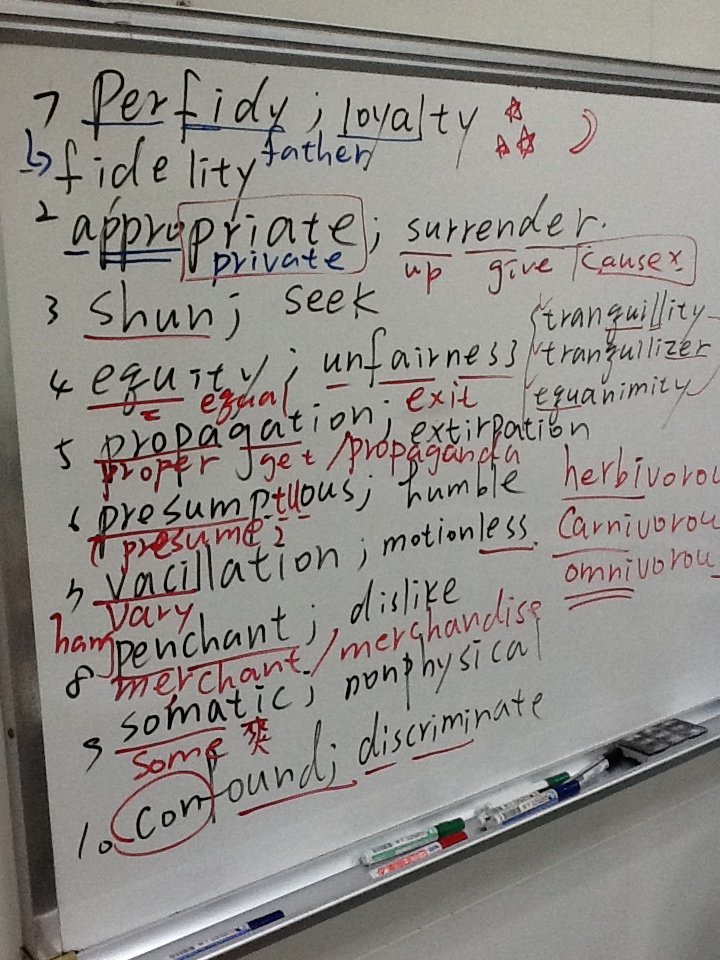 1 Perfidy; loyalty
fidelity father
2 appropriate; surrender.
private up give cause x
3 shun; seek
tranquillity
4 equity; unfairness
tranquilizer
= equal exit
equanimity
5 propagation; extirpation
proper get / propaganda
6 presumptuous; humble
herbivorou
presume 2
carnivorou
7 vacillation; motionless.
omnivorou
vary
8 penchant; dislike
ham merchant / merchandise
9 somatic; nonphysical
some 爽
10 confound; discriminate